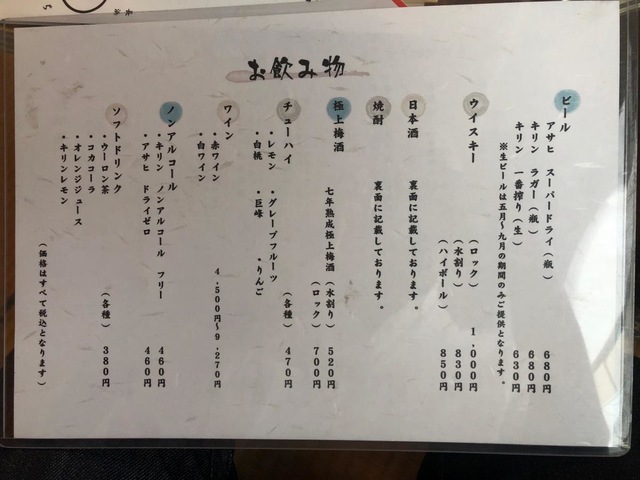 お飲み物
ビール
アサヒ スーパードライ(瓶) 680円
キリン ラガー(瓶) 680円
キリン 一番搾り(生) 630円
※生ビールは五月〜九月の期間のみご提供となります。
ウイスキー
(ロック) 1,000円
(水割り) 830円
(ハイボール) 850円
日本酒 裏面に記載しております。
焼酎 裏面に記載しております。
極上梅酒
七年熟成極上梅酒(水割り) 520円
(ロック) 700円
チューハイ (各種) 470円
・レモン ・グレープフルーツ
・白桃 ・巨峰 ・りんご
ワイン 4,500円〜9,270円
・赤ワイン
・白ワイン
ノンアルコール
・キリン ノンアルコール フリー 460円
・アサヒ ドライゼロ 460円
ソフトドリンク (各種) 380円
・ウーロン茶
・コカコーラ
・オレンジジュース
・キリンレモン
(価格はすべて税込となります)